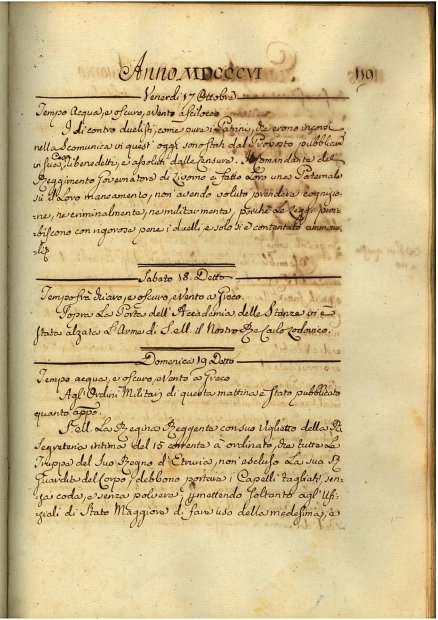 Anno MDCCCVI
119
Venerdì 17 Ottobre
Tempo Acqua, e oscuro, e Vento a Scilocco
I di contro duelisti, come pure i Patrini, che erono incorsi
nella Scomunica vi quest' oggi sono stati dal Proposto pubblicam
in sua Casa, libenedetti, e asoluti dalle Censura. Il Comandante del
Reggimento Governatore di Livorno à fatto Loro una Paternale
su il Loro mancamento, non avendo voluto prendere cognizio,
ne, ne criminalmente, ne militarmente, perchè Le Leggi proi,
biscono con rigorose pene i duelli, e solo si è contentato ammonir,
li
Sabato 18. Detto
Tempo frà chiaro, e oscuro, e Vento a Greco.
Sopra La Porta dell' Accademia delle Stanze vi è
stata alzata L'Arme di S. M. il Nostro Re Carlo Lodovico.
Domenica 19 Detto
Tempo acqua, e oscuro, e Vento a Greco
Agl' Ordini Militari di questa mattina è stato pubblicato
quanto appo.
S. M. La Regina Reggente con suo Viglietto della R.
Segreteria intima del 15 corrente à ordinato, che tutta La
Truppa del Suo Regno d'Etruria, non' escluso La sua R.
Guardia del Corpo, debbono portare i Capelli tagliati, sen,
za coda, e senza polvere, permettendo soltanto agl' Uffi,
ziali di Stato Maggiore di fare uso della medesima, e